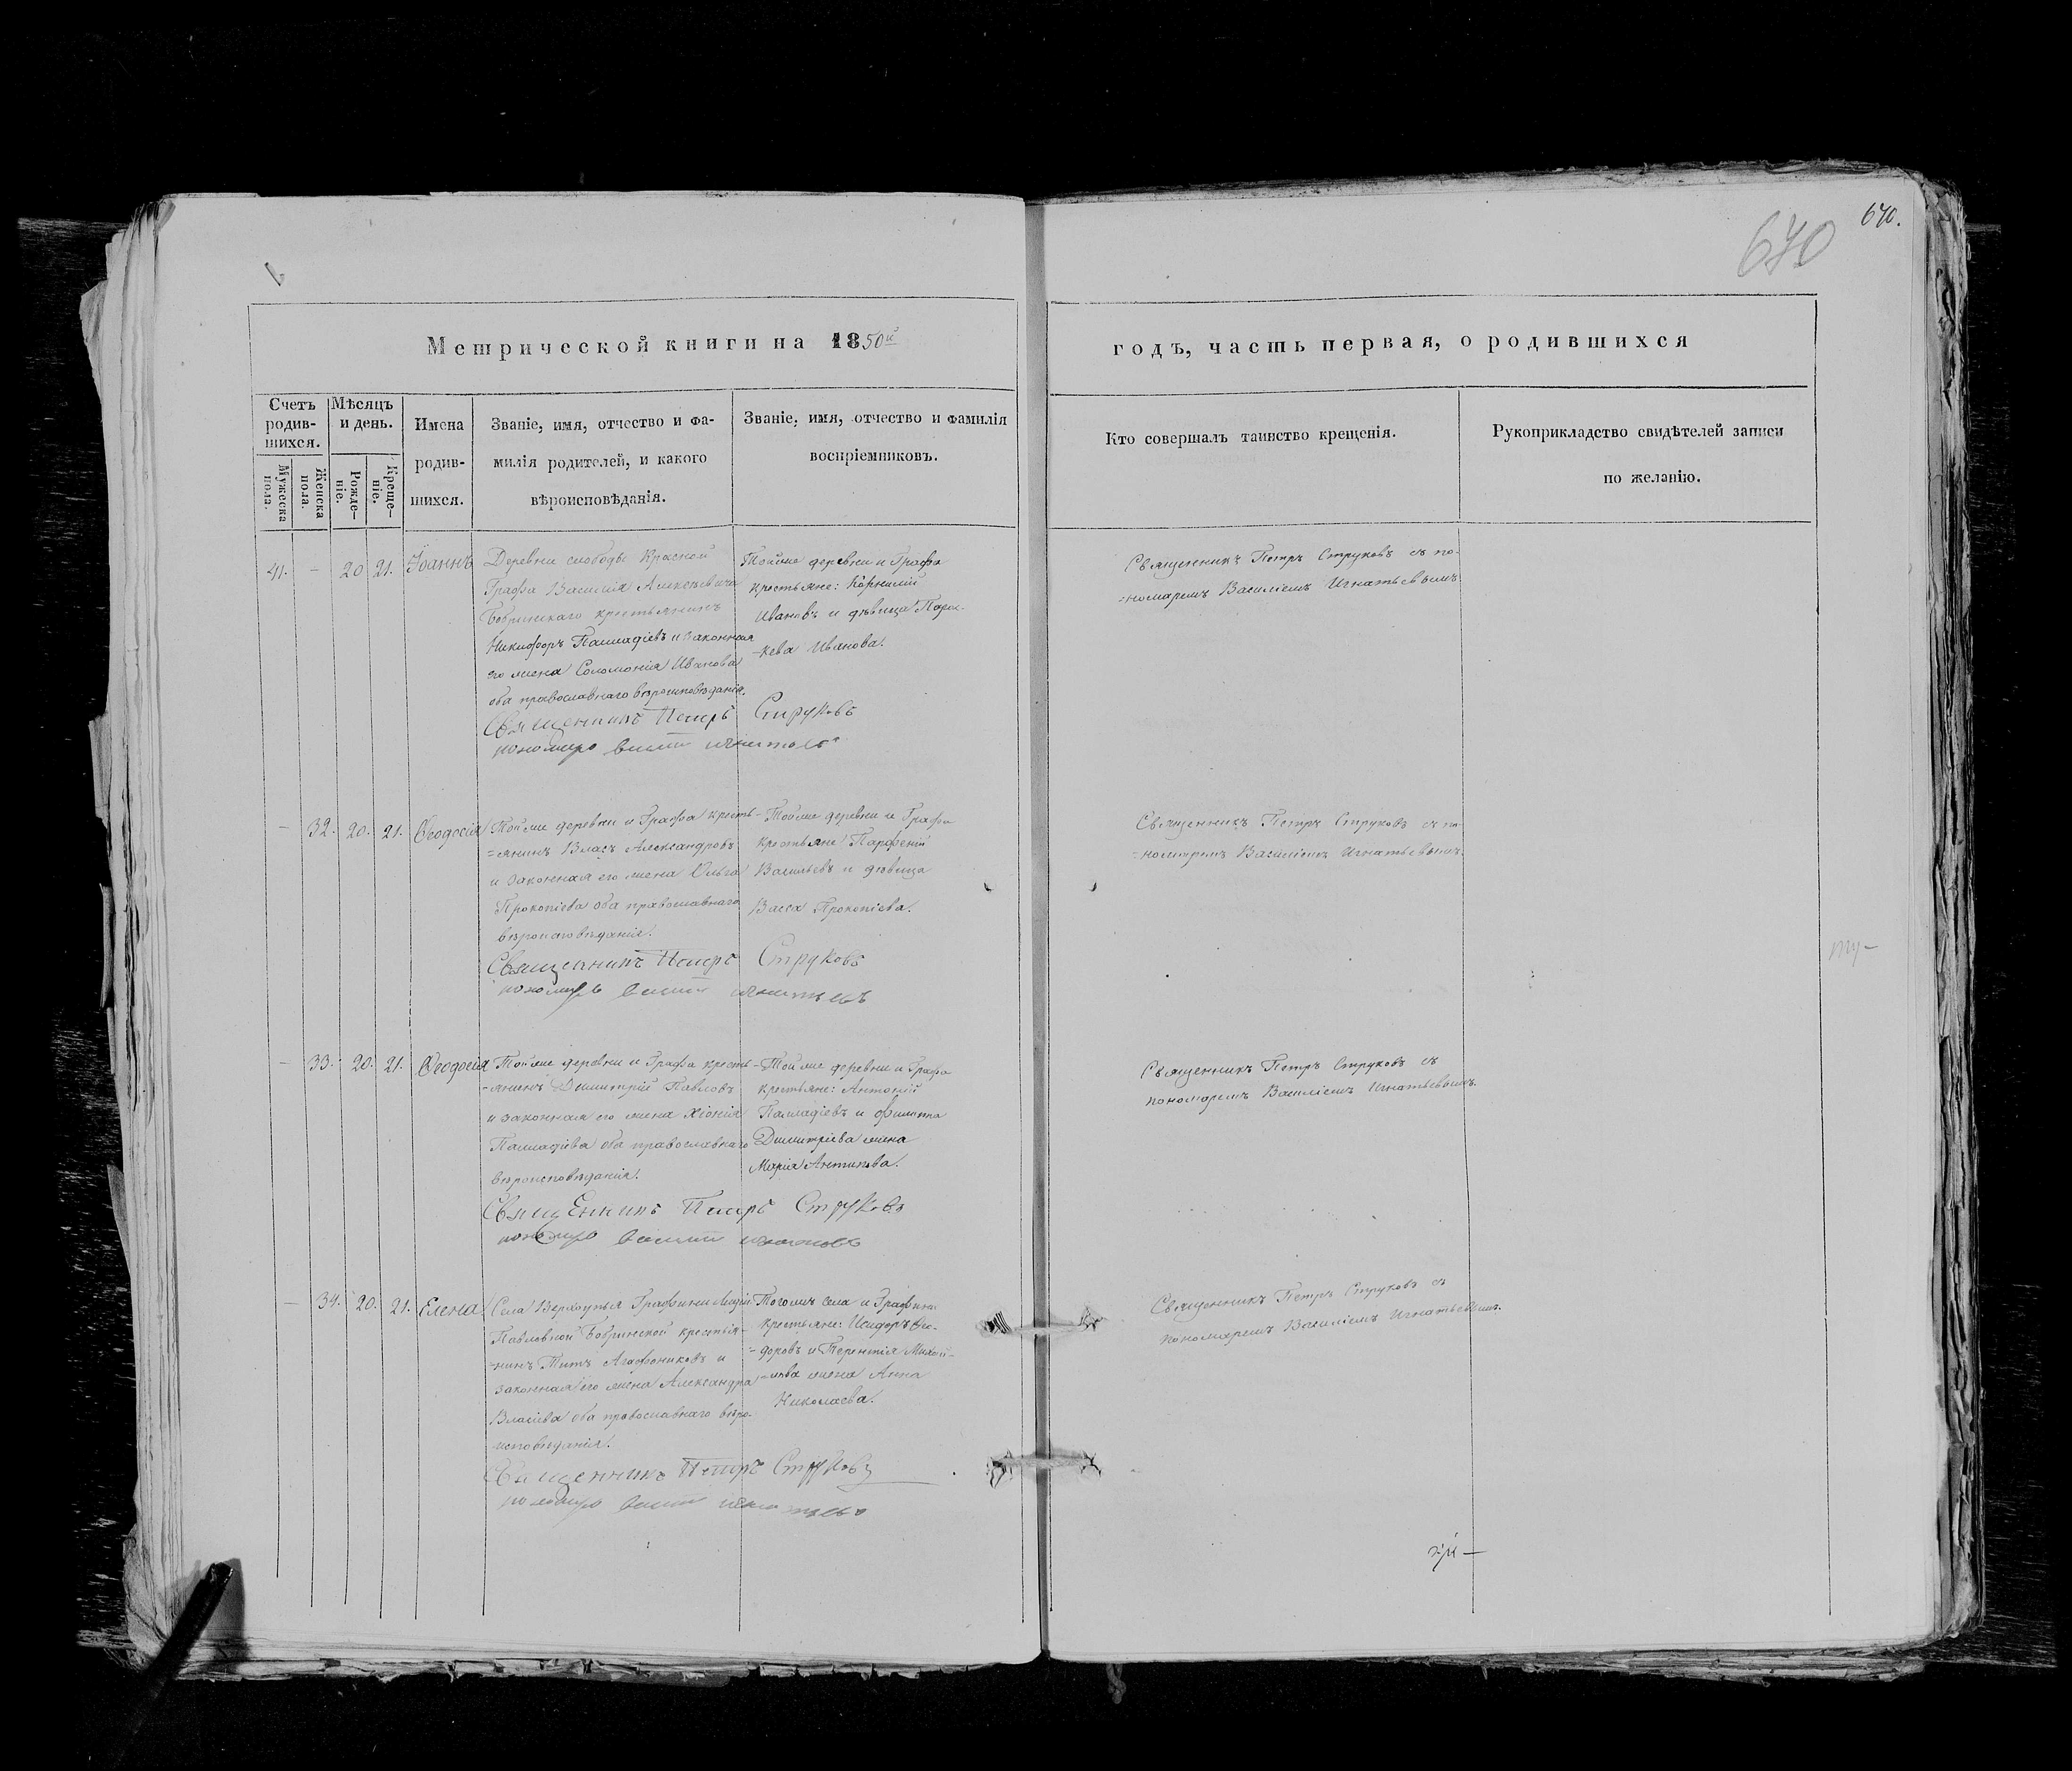 670.
670
Метрической книги на 1850й
годъ, часть первая, о родившихся
Счетъ родив-шихся.
Мѣсяцъ и день.
Мужеска пола.
Женска пола.
Рожде-ніе.
Креще-ніе.
Имена
родив-
шихся.
Званіе, имя, отчество и фа-
милія родителей, и какого
вѣроисповѣданія.
Званіе, имя, отчество и фамилія
воспріемниковъ.
Кто совершалъ таинство крещенія.
Рукоприкладство свидѣтелей записи
по желанію.
41. — 20 21. Іоаннъ
Деревни слободы Красной
Графа Василія Алексѣевича
Бобринскаго крестьянинъ
Никифоръ Палладіевъ и законная
его жена Соломонія Иванова
оба православнаго вѣроисповѣданія.
Тойже деревни и Графа
крестьяне: Корнилій
Ивановъ и дѣвица Парас-
-кева Иванова.
Священникъ Петръ Струковъ съ по-
=номаремъ Василіемъ Игнатьевымъ.
Священникъ Петръ Струковъ
пономарь
— 32. 20. 21. Ѳеодосія
Тойже деревни и Графа кресть-
=янинъ Власъ Александровъ
и законная его жена Ольга
Прокопіева оба православнаго
вѣроисповѣданія.
Тойже деревни и Графа
крестьяне Парфеній
Васильевъ и дѣвица
Васса Прокопіева.
Священникъ Петръ Струковъ съ по-
=номаремъ Василіемъ Игнатьевымъ.
Священникъ Петръ Струковъ
пономарь
— 33. 20. 21. Ѳеодосія
Тойже деревни и Графа кресть-
-янинъ Димитрій Павловъ
и законная его жена Хіонія
Палладіева оба православнаго
вѣроисповѣданія.
Тойже деревни и Графа
крестьяне: Антоній
Палладіевъ и Филиппа
Димитріева жена
Марія Антипова.
Священникъ Петръ Струковъ съ
пономаремъ Василіемъ Игнатьевымъ.
Священникъ Петръ Струковъ
пономарь
— 34. 20. 21. Елена
Села Верхоупья Графини Лидіи
Павловной Бобринской крестья-
=нинъ Титъ Агафониковъ и
законная его жена Александра
Власіева оба православнаго вѣро-
исповѣданія.
Тогожъ села и Графини
крестьяне: Исидоръ Ѳео-
=доровъ и Терентія Михай-
=лова жена Анна
Николаева.
Священникъ Петръ Струковъ съ
пономаремъ Василіемъ Игнатьевымъ.
Священникъ Петръ Струковъ
пономарь